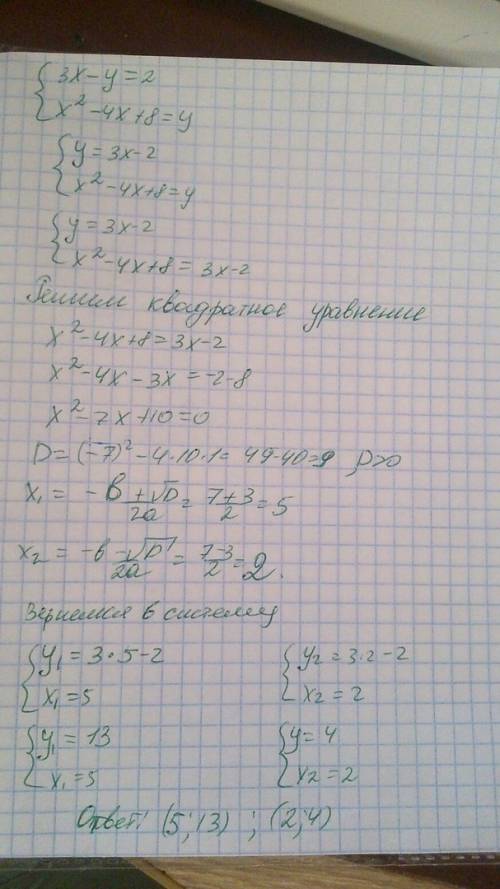 { 3x-y=2
x²-4x+8=y
{ y=3x-2
x²-4x+8=y
{ y=3x-2
x²-4x+8=3x-2
Решим квадратное уравнение
x²-4x+8=3x-2
x²-4x-3x=-2-8
x²-7x+10=0
D=(-7)²-4·10·1=49-40=9, D>0
x₁ = -b+√D/2a = 7+3/2 = 5
x₂ = -b-√D/2a = 7-3/2 = 2.
Вернемся в систему
{ y₁=3·5-2 { y₂=3·2-2
x₁=5 x₂=2
{ y₁=13 { y=4
x₁=5 x₂=2
Ответ: (5;13) ; (2;4)